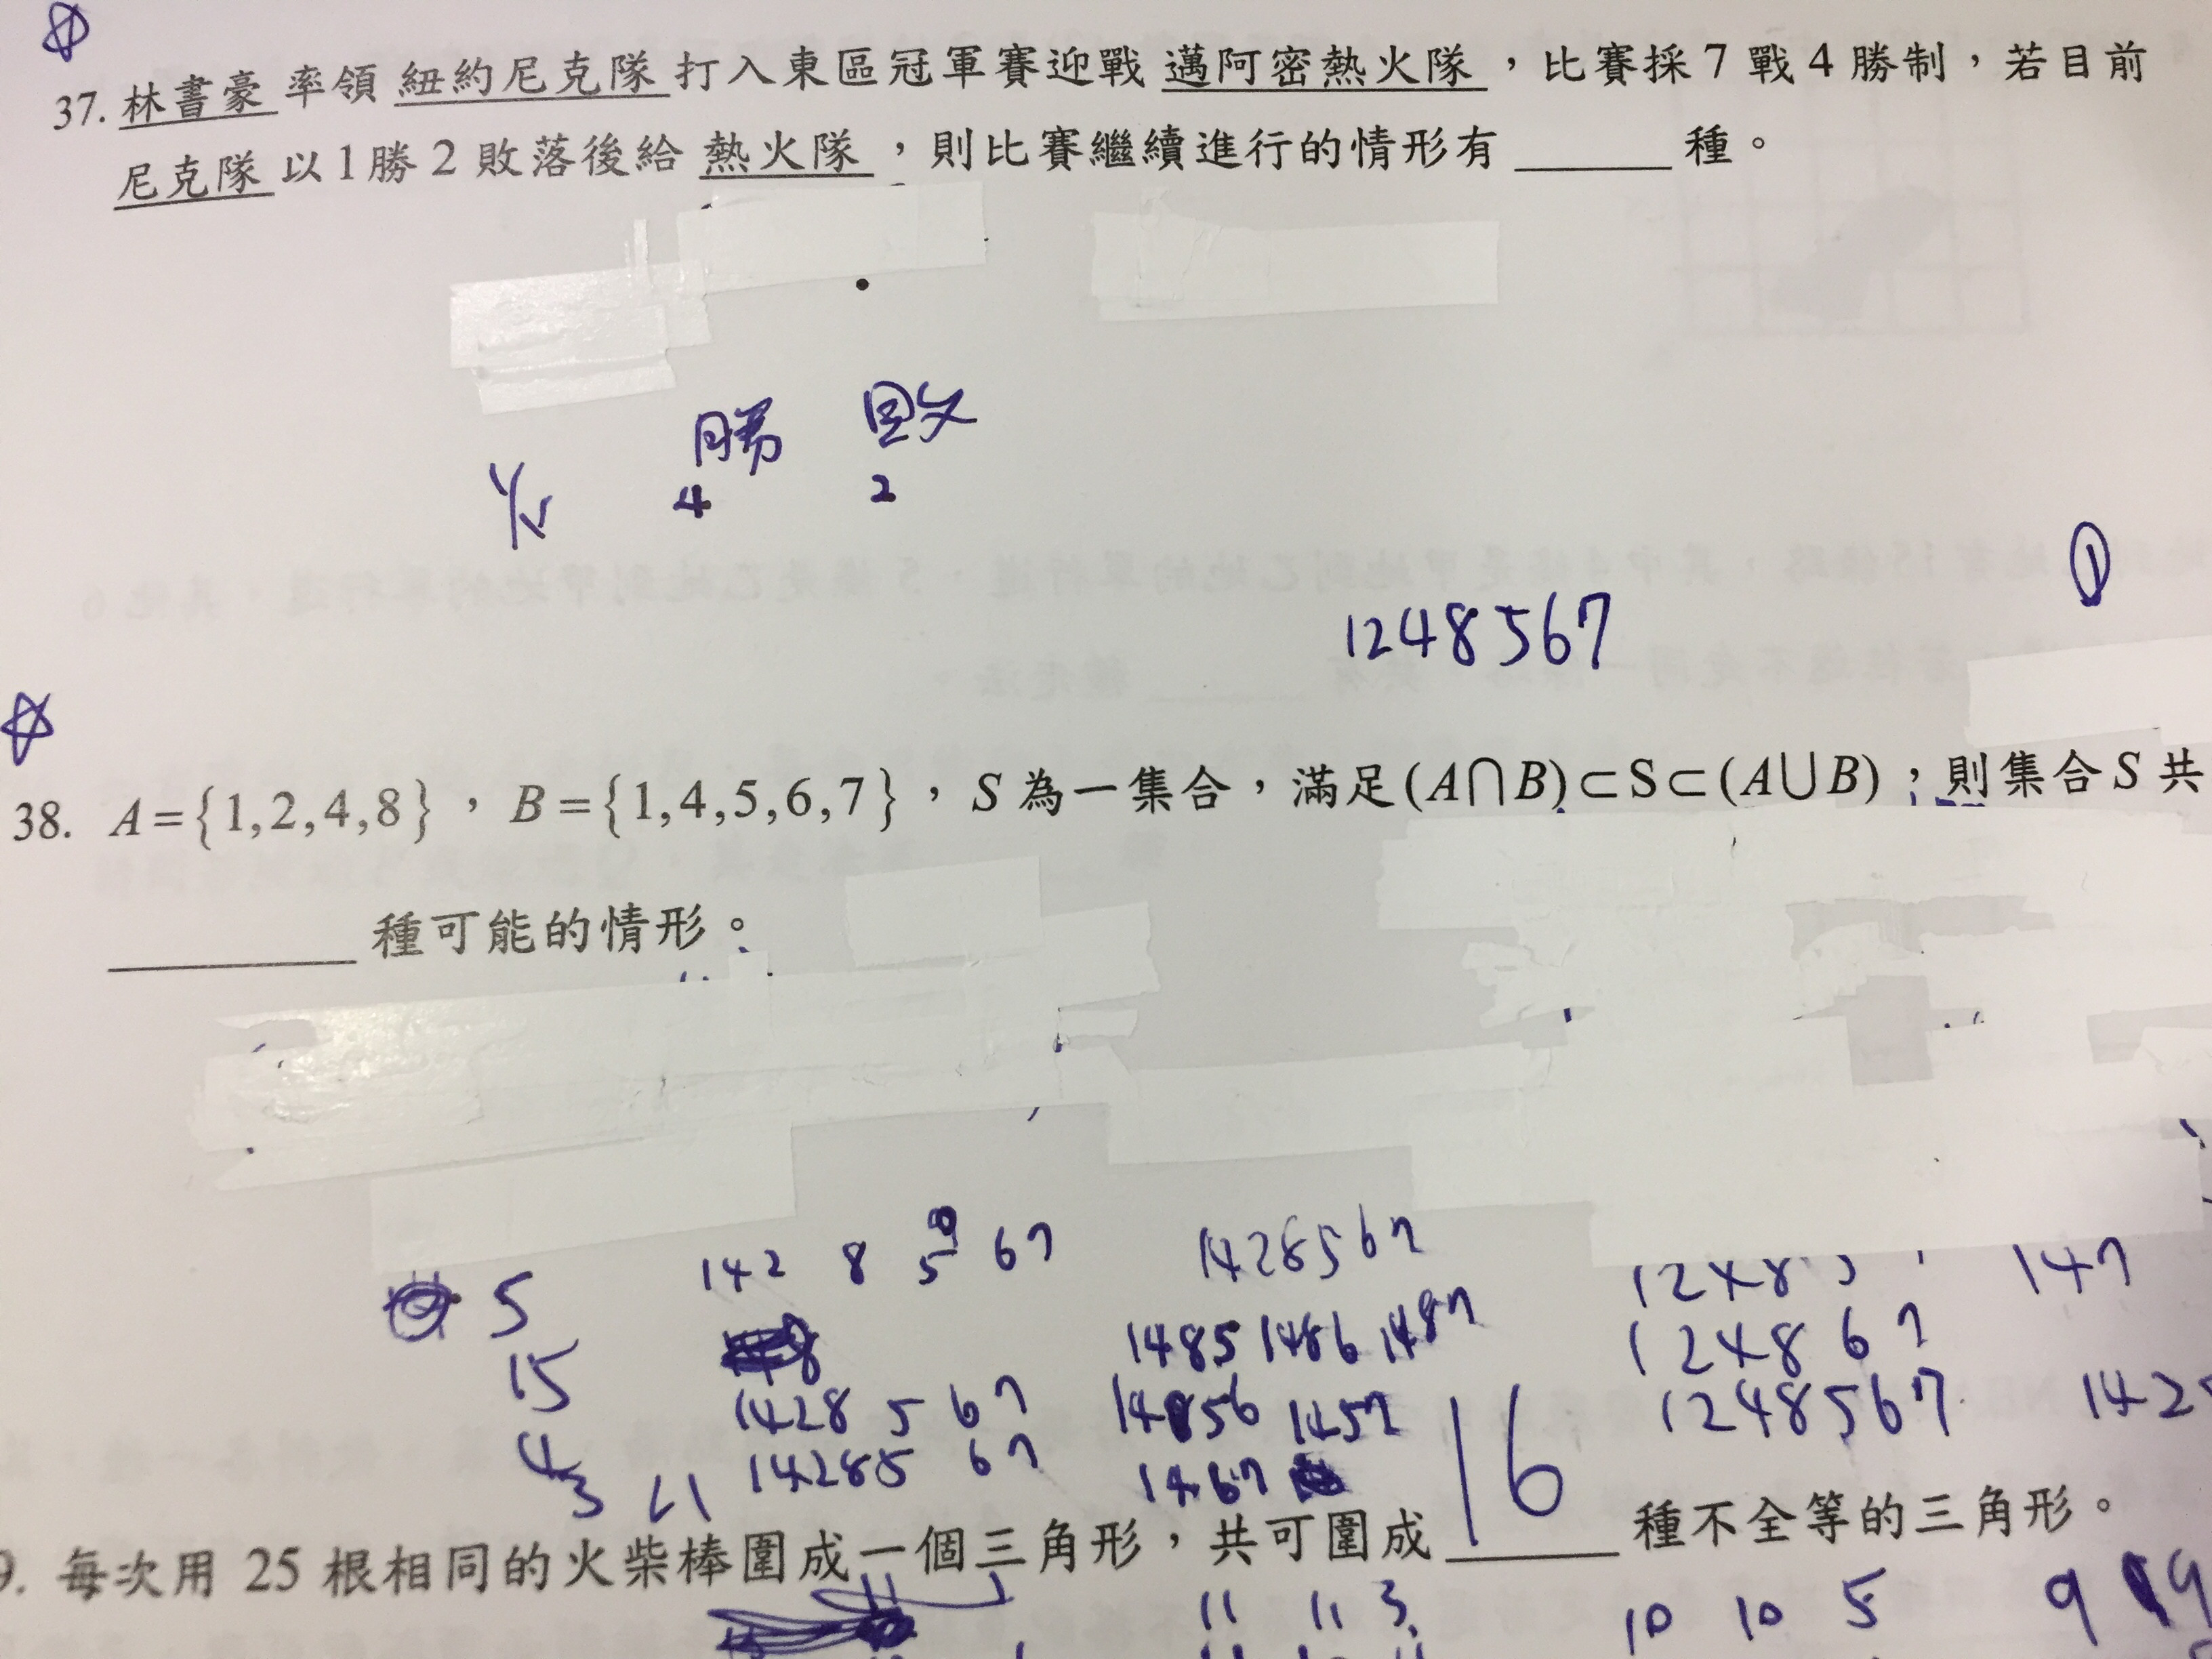 37. 林書豪 率領 紐約尼克隊 打入東區冠軍賽迎戰 邁阿密熱火隊，比賽採7戰4勝制，若目前
尼克隊 以1勝2敗落後給 熱火隊，則比賽繼續進行的情形有______種。
勝 敗
4 2
1248567
①
38. A={1,2,4,8}，B={1,4,5,6,7}，S為一集合，滿足(A∩B)⊂S⊂(A∪B)，則集合S共
______種可能的情形。
5 142 8 5 67 1428567 147
15 1485 1486 1487 1248 67
1428 5 67 14856 1457 1248567 142
4 14285 67 1467
3
9. 每次用 25 根相同的火柴棒圍成一個三角形，共可圍成 16 種不全等的三角形。
11 11 3 10 10 5 9 9